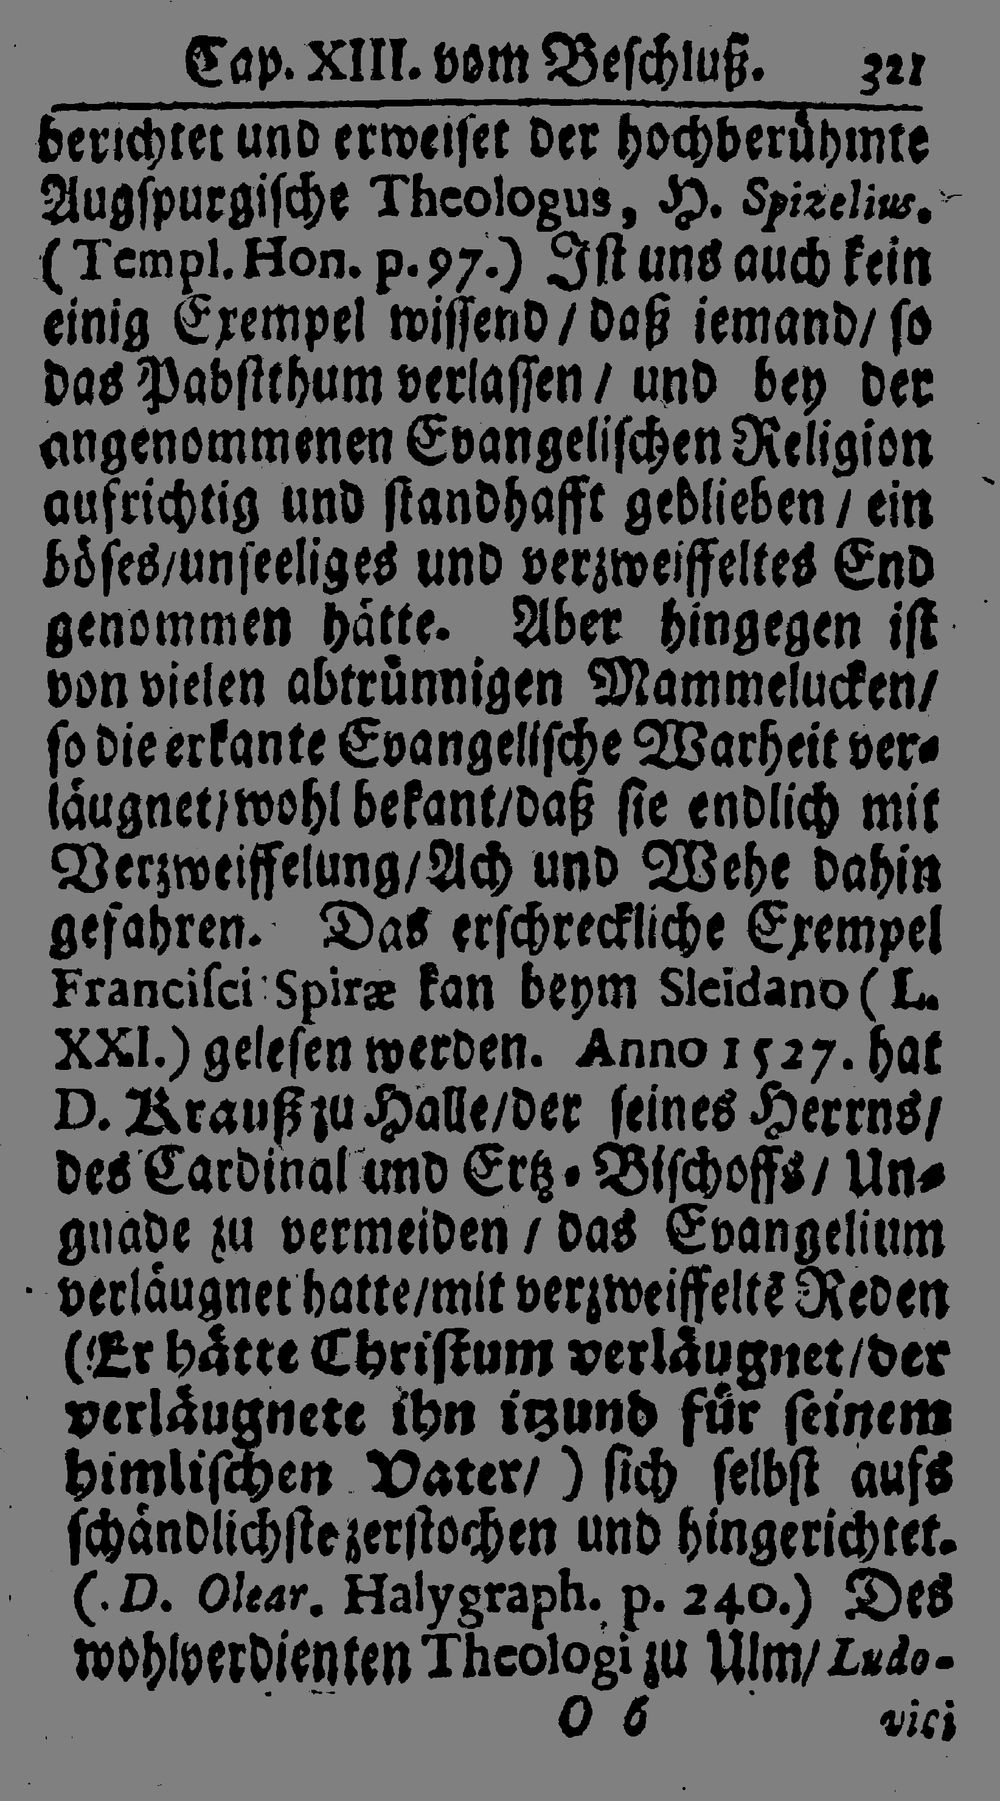 Cap. XIII. vom Beſchluß. 321
berichtet und erweiſet der hochberühmte
Augſpurgiſche Theologus, H. Spizelius.
(Templ. Hon. p. 97.) Iſt uns auch kein
einig Exempel wiſſend / daß iemand / ſo
das Pabſtthum verlaſſen / und bey der
angenommenen Evangeliſchen Religion
aufrichtig und ſtandhafft geblieben / ein
böſes / unſeeliges und verzweiffeltes End
genommen hätte. Aber hingegen iſt
von vielen abtrünnigen Mammelucken /
ſo die erkante Evangeliſche Warheit ver-
läugnet / wohl bekant / daß ſie endlich mit
Verzweiffelung / Ach und Wehe dahin
gefahren. Das erſchreckliche Exempel
Franciſci Spiræ kan beym Sleidano (L.
XXI.) geleſen werden. Anno 1527. hat
D. Krauß zu Halle / der ſeines Herrns /
des Cardinal und Ertz-Biſchoffs / Un-
gnade zu vermeiden / das Evangelium
verläugnet hatte / mit verzweiffeltẽ Reden
(Er hätte Chriſtum verläugnet / der
verläugnete ihn itzund für ſeinem
himliſchen Vater / ) ſich ſelbſt aufs
ſchändlichſte zerſtochen und hingerichtet.
(D. Olear. Halygraph. p. 240.) Des
wohlverdienten Theologi zu Ulm / Ludo-
O 6 vici